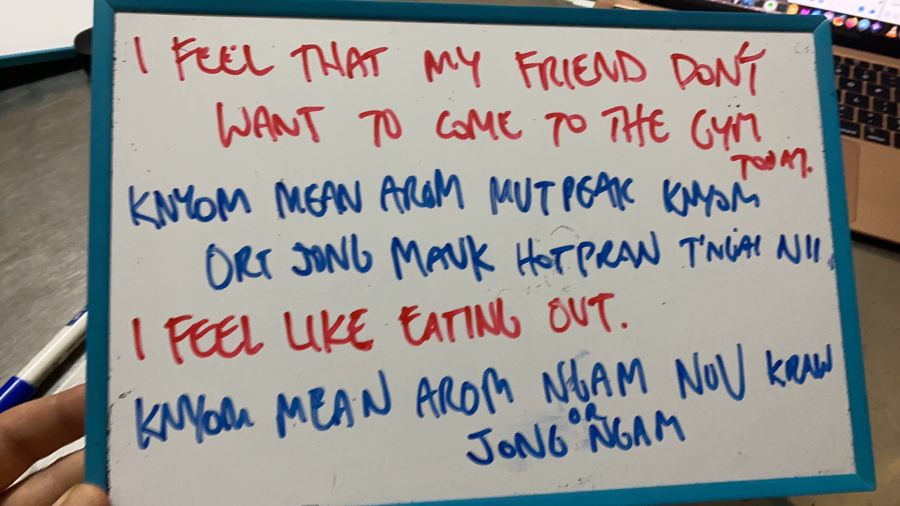 I FEEL THAT MY FRIEND DON'T
WANT TO COME TO THE GYM
TODAY.
KNYOM MEAN AROM MUTPEAK KNYOM
ORT JONG MAUK HOTPRAN T'NGAI NII
I FEEL LIKE EATING OUT.
KNYOM MEAN AROM NGAM NUV KRAW
OR
JONG NGAM